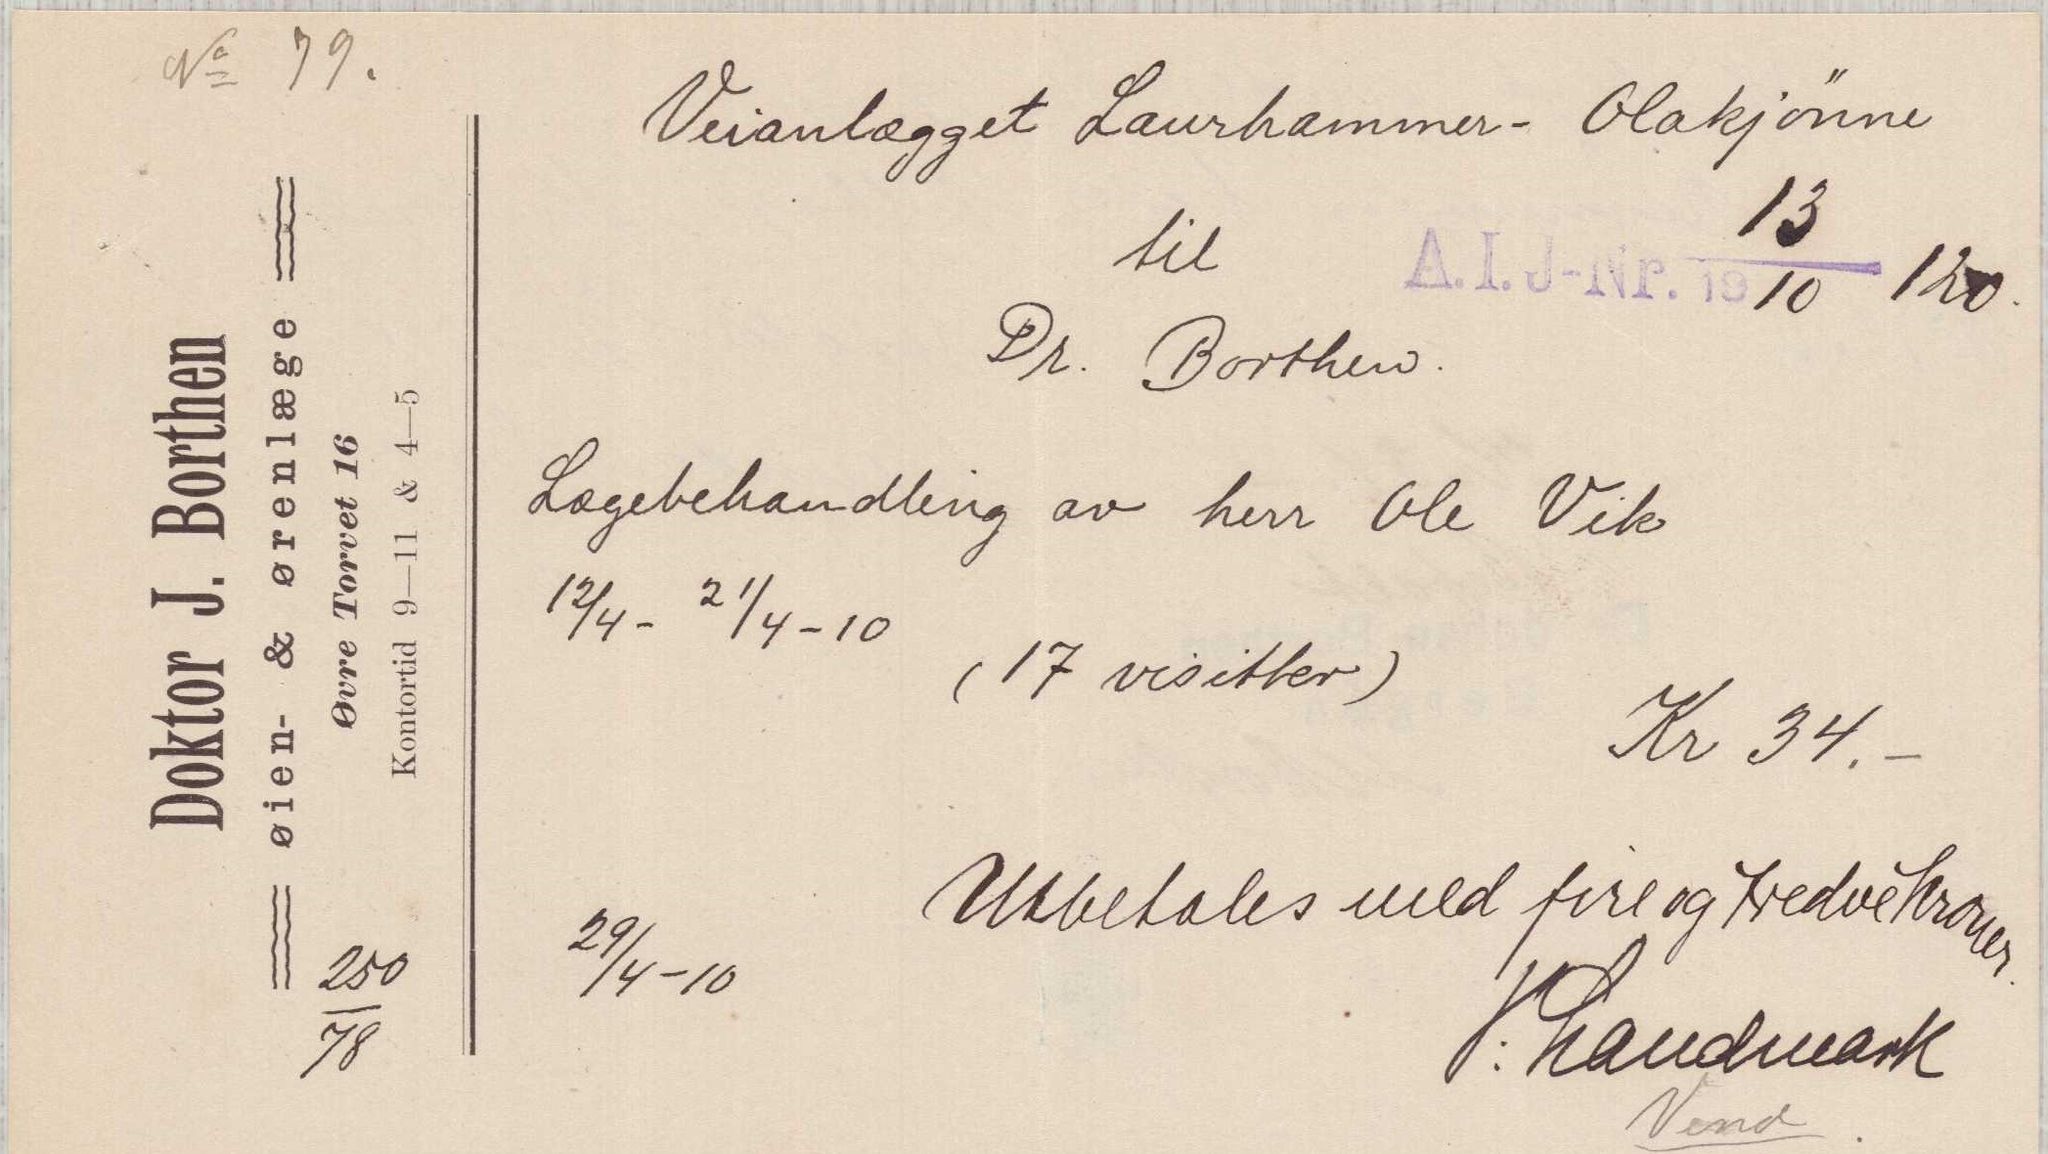 No 79.
Doktor J. Borthen
øien- & ørenlæge
Øvre Torvet 16
Kontortid 9—11 & 4—5
250
78
Veianlægget Laurhammer- Olakjönne
til
13
A.I.J-Nr. 1910 120.
Dr. Borthen.
Lægebehandling av herr Ole Vik
12/4 - 21/4 - 10
(17 visitter)
Kr 34.-
Utbetales med fire og tredve Kroner.
29/4 - 10
Landmark
Vend.